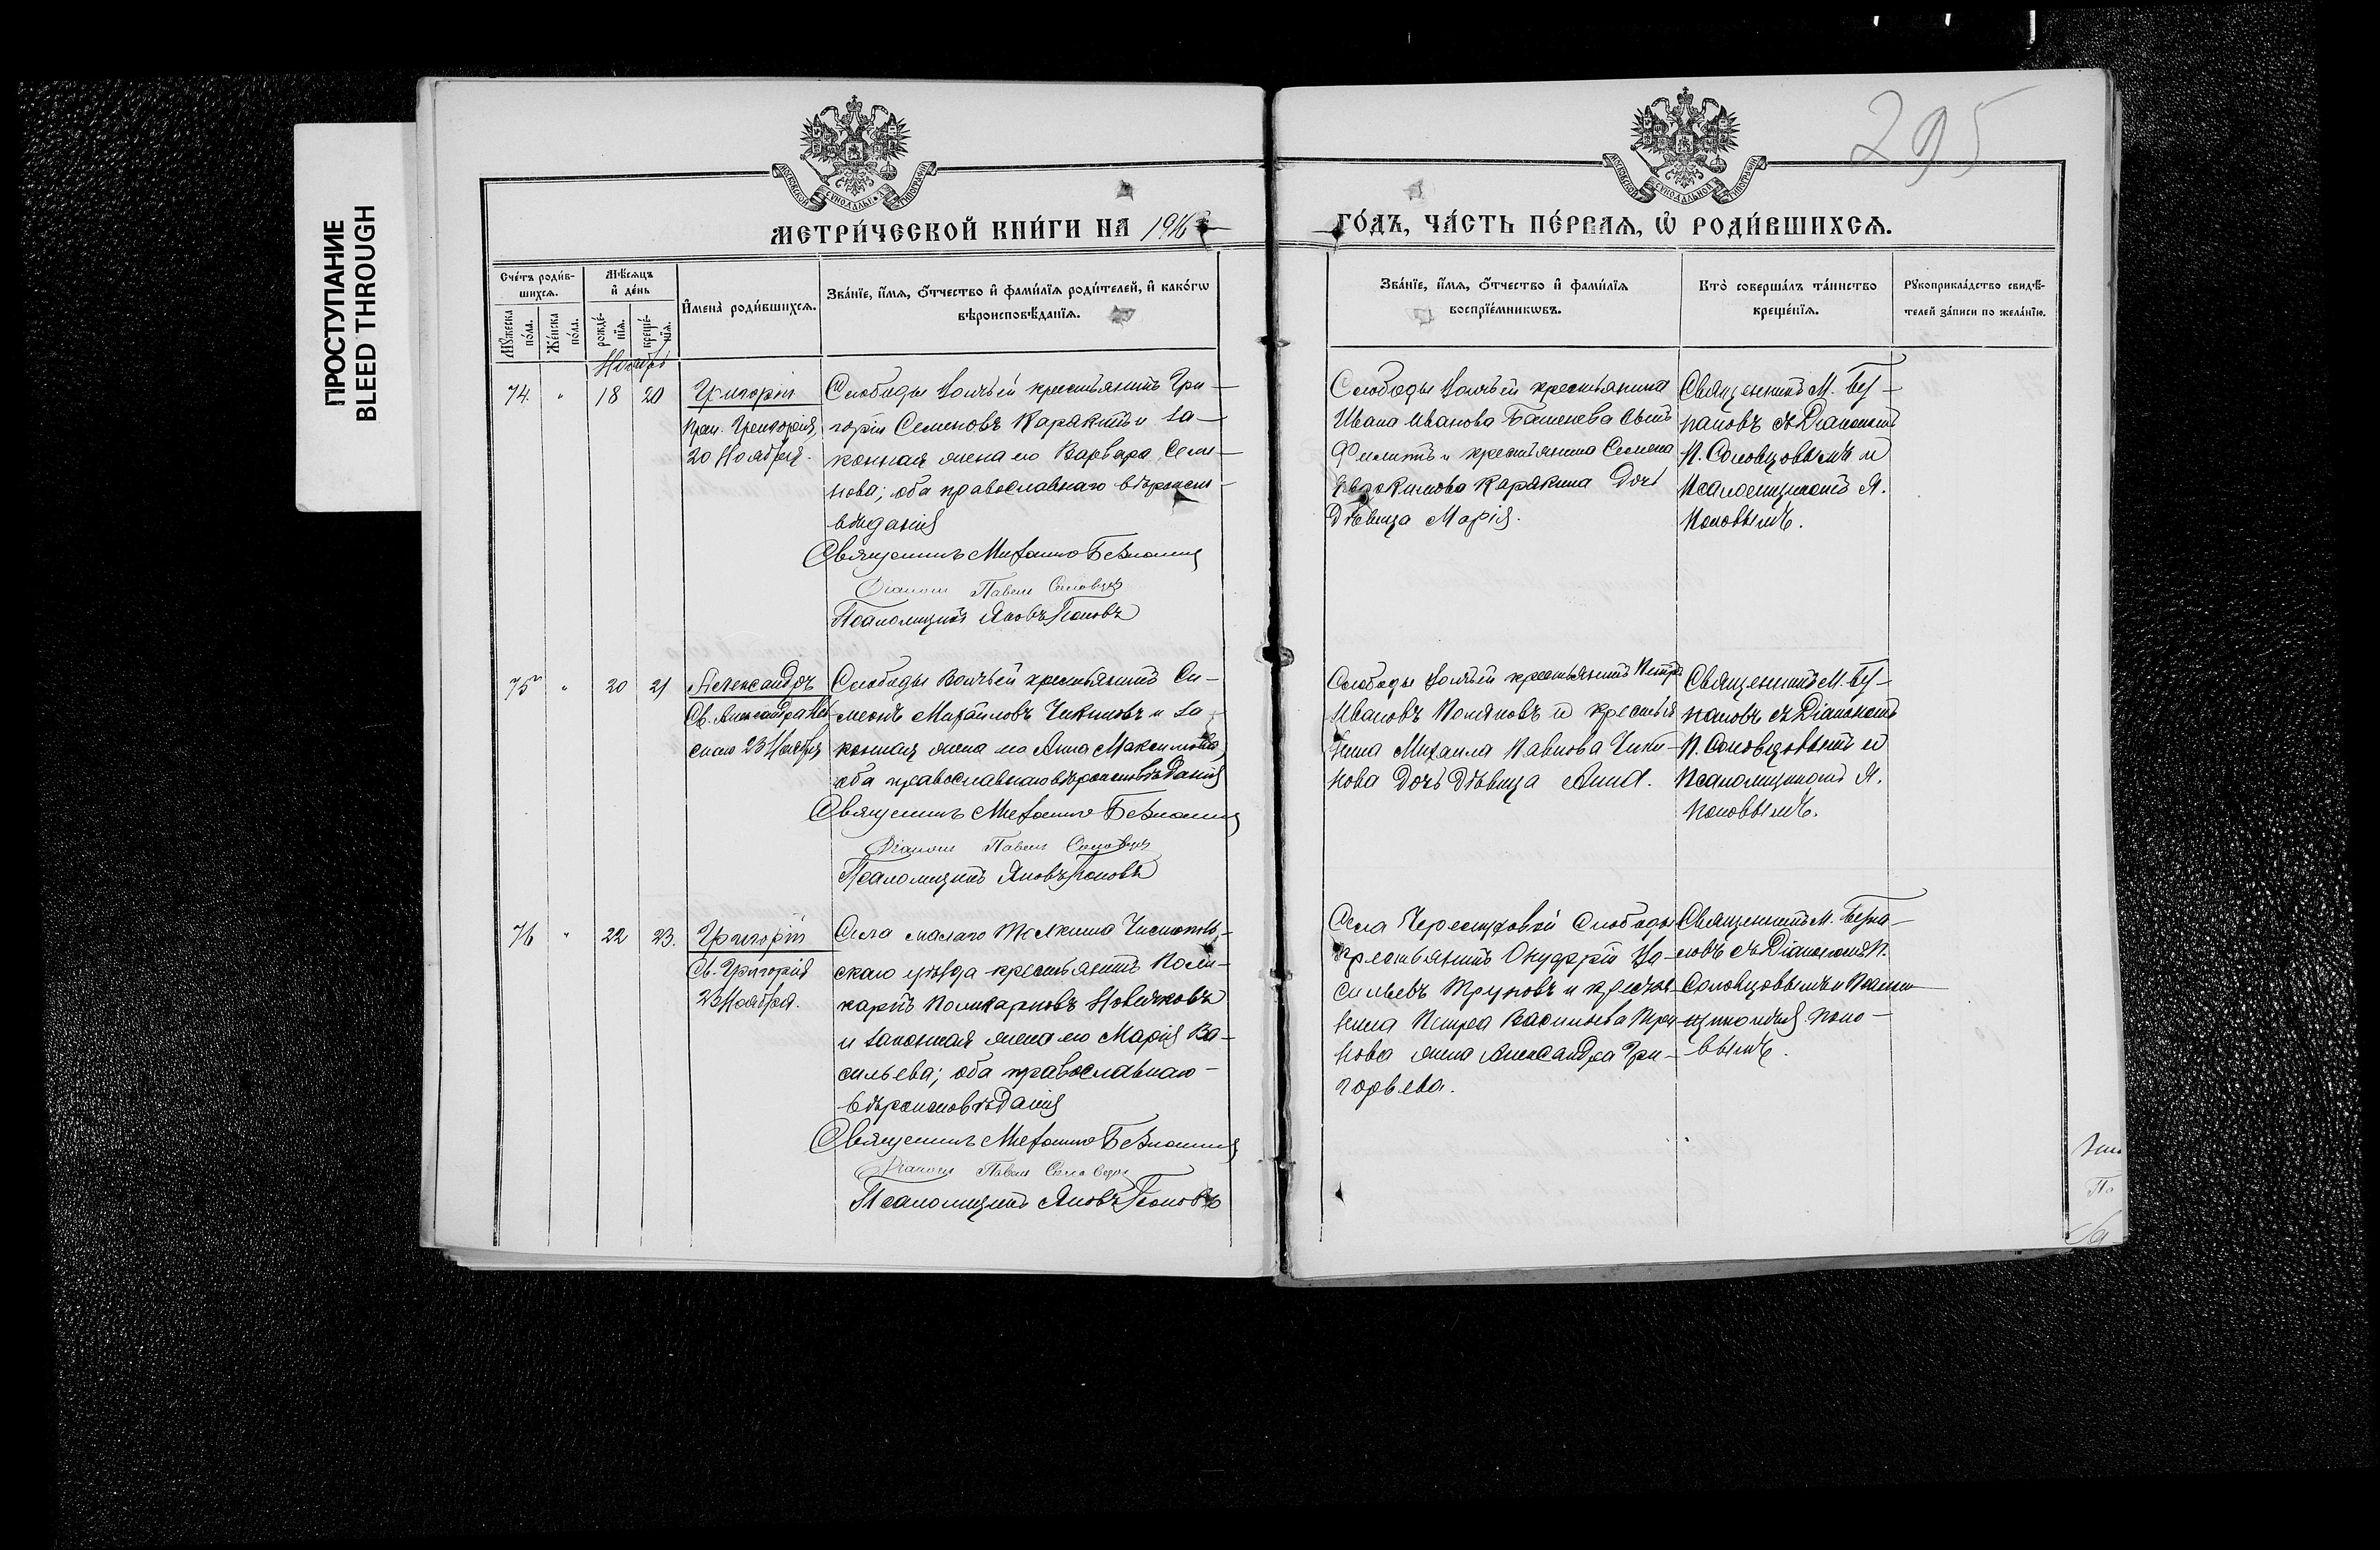 ПРОСТУПАНИЕ
BLEED THROUGH
295
МЕТРИ́ЧЕСКОЙ КНИ́ГИ НА 1916
ГО́ДЪ, ЧА́СТЬ ПЕ́РВАЯ, Ѡ҆ РОДИ́ВШИХСЯ.
Сче́тъ роди́в-
шихся.
Мѣ́сяцъ
и҆ де́нь
Мꙋ́жеска по́ла.
Же́нска по́ла.
рожде́-
нїя.
креще́-
нїя.
И҆мена̀ роди́вшихся.
Зва́нїе, и҆́мя, ѻ҆́тчество и҆ фами́лїя роди́телей, и҆ како́гѡ
вѣроисповѣ́данїя.
Зва́нїе, и҆́мя, ѻ҆́тчество и҆ фами́лїя
воспрїе́мникѡвъ.
Кто̀ соверша́лъ та́инство
креще́нїя.
Рꙋкоприкла́дство свидѣ́-
телей за́писи по жела́нїю.
Ноябрь
74. " 18 20
Григорій
Преп. Григорія,
20 Ноября.
Слободы крестьянинъ Гри-
горій Семеновъ Каракинъ и за-
конная жена его Варвара Семе-
нова; оба православнаго вѣроиспо-
вѣданія
Священникъ Михаилъ
Діаконъ Павелъ Соловцовъ
Псаломщикъ Яковъ Поповъ
Слободы крестьянина
Ивана Иванова сынъ
Филиппъ и крестьянина Семена
Евдокимова Каракина дочь
дѣвица Марія.
Священникъ М. Без-
паловъ съ Діакономъ
П. Соловцовымъ и
Псаломщикомъ Я.
Поповымъ.
75 " 20 21
Александръ
Св. Александра Нев-
скаго 23 Ноября
Слободы крестьянинъ Си-
меонъ Михаиловъ Чикиновъ и за-
конная жена его Анна Максимова
оба православнаго вѣроисповѣданія
Священникъ Михаилъ
Діаконъ Павелъ Соловцовъ
Псаломщикъ Яковъ Поповъ
Слободы крестьянинъ Петръ
Ивановъ и крестья-
нина Михаила Павлова Чики-
нова дочь дѣвица Анна.
Священникъ М. Без-
паловъ съ Діакономъ
П. Соловцовымъ и
Псаломщикомъ Я.
Поповымъ.
76 " 22 23.
Григорій
Св. Григорія
23 Ноября.
Села малаго Чистополь-
скаго уѣзда крестьянинъ Поли-
карпъ Поликарповъ Новичковъ
и законная жена его Марія Ва-
сильева; оба православнаго
вѣроисповѣданія
Священникъ Михаилъ
Діаконъ Павелъ Соловцовъ
Псаломщикъ Яковъ Поповъ
Села Слободы
крестьянинъ Онуфрій Ва-
сильевъ Труновъ и крестья-
нина Петра Васильева Тру-
нова жена Александра Гри-
горьева.
Священникъ М. Безпа-
ловъ съ Діакономъ П.
Соловцовымъ и Псалом-
щикомъ Я. Попо-
вымъ.